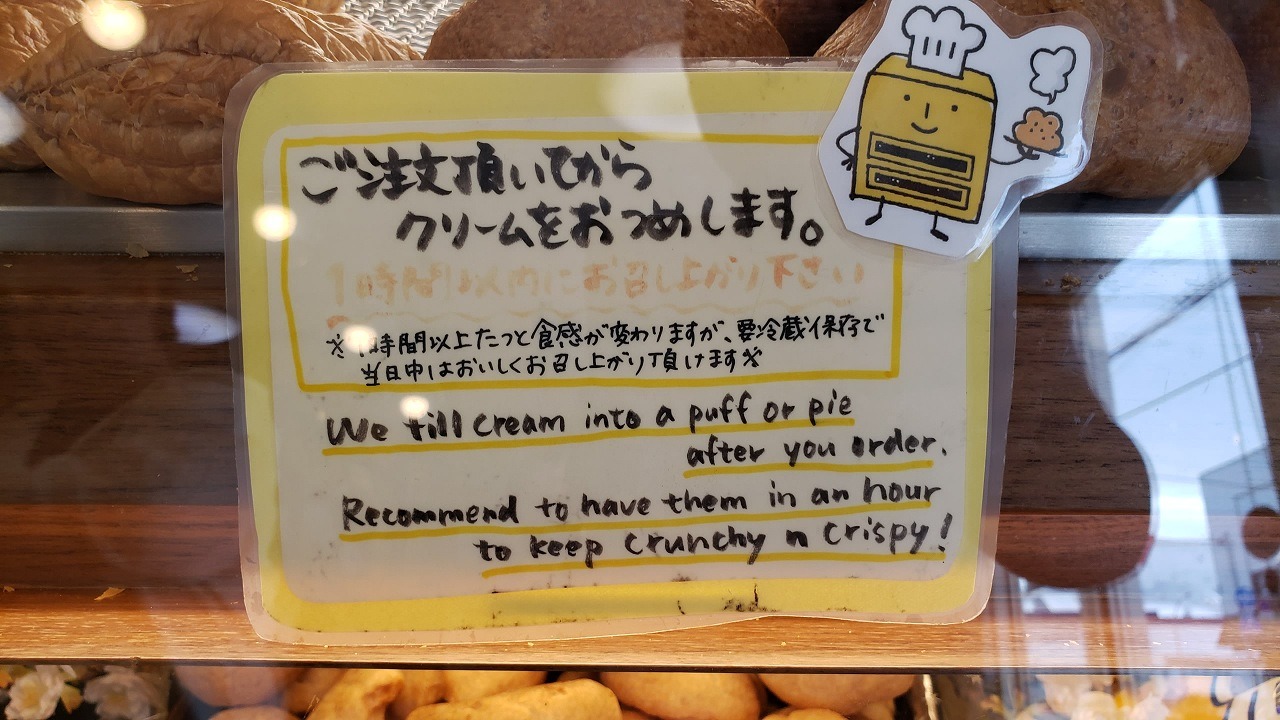 ご注文頂いてから
クリームをおつめします。
1時間以内にお召し上がり下さい
※1時間以上たつと食感が変わりますが、要冷蔵保存で
当日中はおいしくお召し上がり頂けます※
We fill cream into a puff or pie
after you order.
Recommend to have them in an hour
to keep crunchy n crispy!